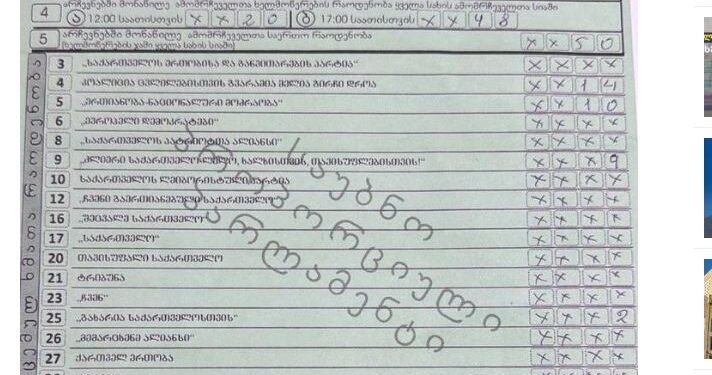 არჩევნებში მონაწილე ამომრჩეველთა ხელმოწერების რაოდენობა ყველა სახის ამომრჩეველთა სიაში
4 ა 12:00 საათისთვის x x 2 0 ბ 17:00 საათისთვის x x 4 8
5 არჩევნებში მონაწილე ამომრჩეველთა საერთო რაოდენობა x x 5 0
(ხელმოწერების ჯამი ყველა სახის სიაში)
ცემულ ხმათა რაოდენობა
3 „საქართველოს ერთობისა და განვითარების პარტია“ x x x x
4 კოალიცია ცვლილებისთვის გვარამია მელია გირჩი დროა x x 1 4
5 „ერთიანობა-ნაციონალური მოძრაობა“ x x 1 0
6 „ევროპელი დემოკრატები“ x x x x
8 „საქართველოს პატრიოტთა ალიანსი“ x x x x
9 „ძლიერი საქართველო - ლელო, ხალხისთვის, თავისუფლებისთვის!“ x x x 9
10 საქართველოს ლეიბორისტული პარტია x x x x
12 „ჩვენი გაერთიანებული საქართველო“ x x x x
16 „შეცვალე საქართველო“ x x x x
17 „საქართველო“ x x x x
20 თავისუფალი საქართველო x x x x
21 ტრიბუნა x x x x
23 „ჩვენ“ x x x x
25 „გახარია საქართველოსთვის“ x x x 2
26 „მემარცხენე ალიანსი“ x x x x
27 ქართველ ერთობა x x x x
საუბნო
პროპორციული
პარლამენტი